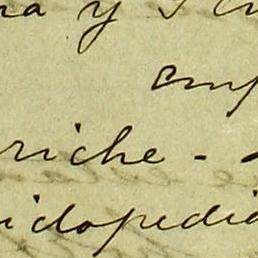 na y
emp
riche -
iclopedia